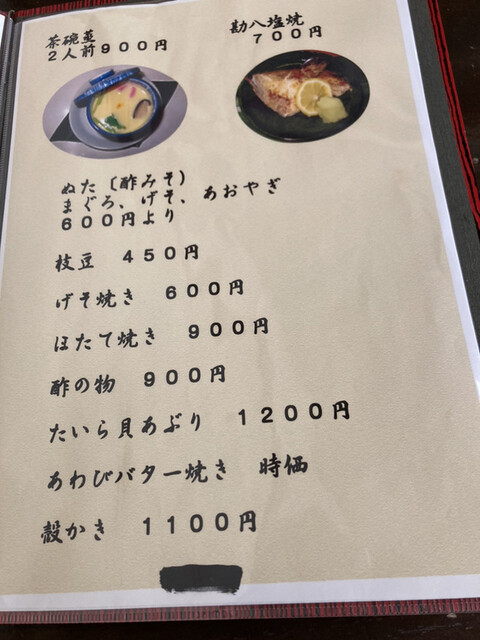 茶碗蒸
2人前900円
勘八塩焼
700円
ぬた(酢みそ)
まぐろ、げそ、あおやぎ
600円より
枝豆 450円
げそ焼き 600円
ほたて焼き 900円
酢の物 900円
たいら貝あぶり 1200円
あわびバター焼き 時価
殻かき 1100円